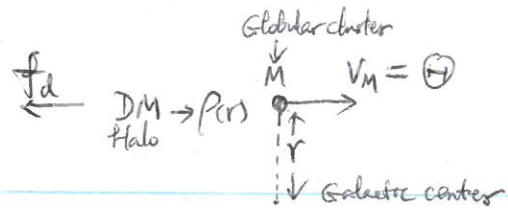 Globular cluster
M
V_M = Θ
f_d
DM → ρ(r)
Halo
r
Galactic center